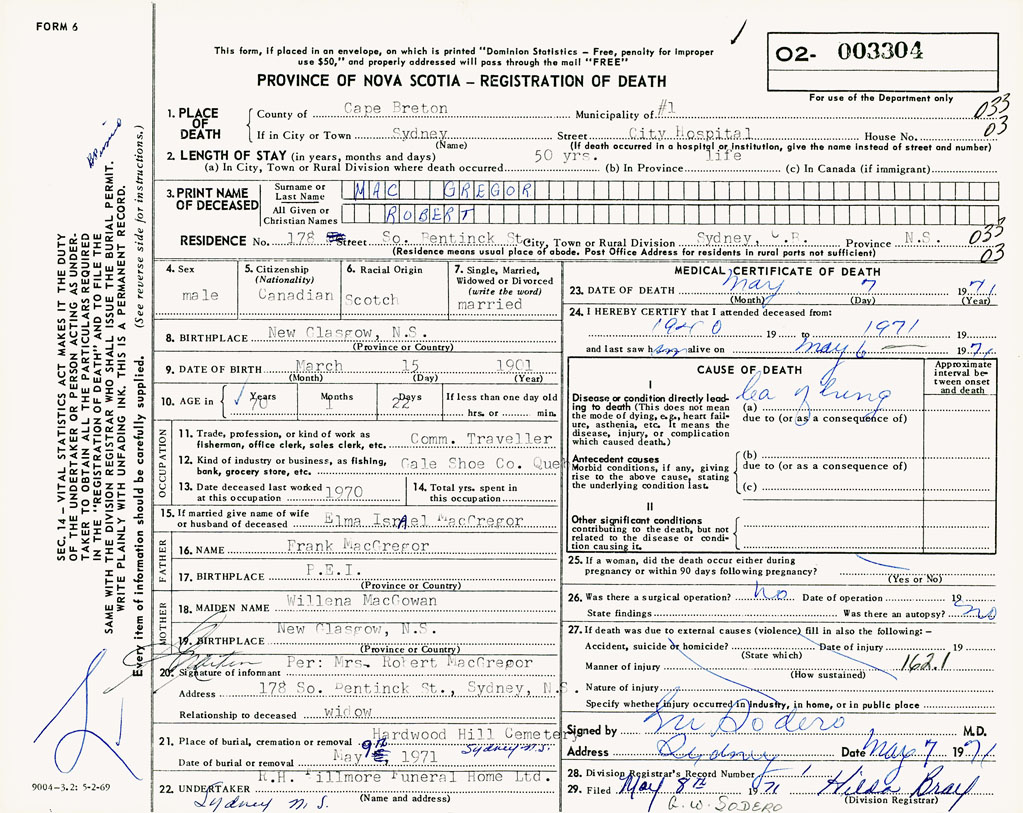 FORM 6
This form, if placed in an envelope, on which is printed "Dominion Statistics – Free, penalty for improper
use $50," and properly addressed will pass through the mail "FREE"
PROVINCE OF NOVA SCOTIA – REGISTRATION OF DEATH
02- 003304
For use of the Department only
033
03
1. PLACE OF DEATH
County of Cape Breton Municipality of #1
If in City or Town Sydney Street City Hospital House No.
(Name) (If death occurred in a hospital or institution, give the name instead of street and number)
2. LENGTH OF STAY (in years, months and days) 50 yrs. life
(a) In City, Town or Rural Division where death occurred (b) In Province (c) In Canada (if immigrant)
3. PRINT NAME OF DECEASED
Surname or Last Name MAC GREGOR
All Given or Christian Names ROBERT
RESIDENCE No. 178 Street So. Bentinck St. City, Town or Rural Division Sydney, C.B. Province N.S.
(Residence means usual place of abode. Post Office Address for residents in rural parts not sufficient)
033
03
4. Sex
male
5. Citizenship (Nationality)
Canadian
6. Racial Origin
Scotch
7. Single, Married, Widowed or Divorced (write the word)
married
8. BIRTHPLACE New Glasgow, N.S.
(Province or Country)
9. DATE OF BIRTH March 15 1901
(Month) (Day) (Year)
10. AGE in Years Months Days If less than one day old
70 1 22 hrs. or min.
OCCUPATION
11. Trade, profession, or kind of work as fisherman, office clerk, sales clerk, etc. Comm. Traveller
12. Kind of industry or business, as fishing, bank, grocery store, etc. Gale Shoe Co. Queb
13. Date deceased last worked at this occupation 1970
14. Total yrs. spent in this occupation
15. If married give name of wife or husband of deceased Elma IsrAel MacGregor
FATHER
16. NAME Frank MacGregor
17. BIRTHPLACE P.E.I.
(Province or Country)
MOTHER
18. MAIDEN NAME Willena MacGowan
19. BIRTHPLACE New Glasgow, N.S.
(Province or Country)
Per: Mrs. Robert MacGregor
20. Signature of informant
Address 178 So. Bentinck St., Sydney, N.S.
Relationship to deceased widow
21. Place of burial, cremation or removal Hardwood Hill Cemetery
Sydney N.S.
Date of burial or removal May 9th, 1971
22. UNDERTAKER R.H. Fillmore Funeral Home Ltd.
(Name and address)
Sydney N.S.
MEDICAL CERTIFICATE OF DEATH
23. DATE OF DEATH May 7 1971
(Month) (Day) (Year)
24. I HEREBY CERTIFY that I attended deceased from:
1940 19 to 1971 19
and last saw him alive on May 6 1971
CAUSE OF DEATH
Approximate interval between onset and death
I
Disease or condition directly leading to death (This does not mean the mode of dying, e.g., heart failure, asthenia, etc. It means the disease, injury, or complication which caused death.)
(a) Ca of lung
due to (or as a consequence of)
Antecedent causes
Morbid conditions, if any, giving rise to the above cause, stating the underlying condition last.
(b)
due to (or as a consequence of)
(c)
II
Other significant conditions
contributing to the death, but not related to the disease or condition causing it.
25. If a woman, did the death occur either during
pregnancy or within 90 days following pregnancy?
(Yes or No)
26. Was there a surgical operation? no Date of operation 19
State findings Was there an autopsy? no
27. If death was due to external causes (violence) fill in also the following: –
Accident, suicide or homicide? Date of injury 19
(State which)
Manner of injury 162.1
(How sustained)
Nature of injury
Specify whether injury occurred in industry, in home, or in public place
Signed by Sodero M.D.
Address Sydney Date May 7 1971
28. Division Registrar's Record Number
29. Filed May 8th 1971 Hilda Bray
(Division Registrar)
G.W. SODERO
SEC. 14 – VITAL STATISTICS ACT MAKES IT THE DUTY
OF THE UNDERTAKER OR PERSON ACTING AS UNDER-
TAKER TO OBTAIN ALL THE PARTICULARS REQUIRED
IN THE "REGISTRATION OF DEATH" AND TO FILE THE
SAME WITH THE DIVISION REGISTRAR WHO SHALL ISSUE THE BURIAL PERMIT.
WRITE PLAINLY WITH UNFADING INK. THIS IS A PERMANENT RECORD.
Every item of information should be carefully supplied. (See reverse side for instructions.)
9004-3.2: 5-2-69